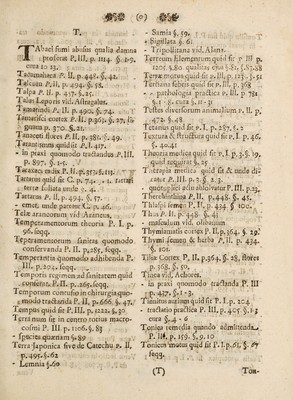 (o)
T.
TAbaci fumi abusus qualia damna
proferat P. III, p. 1114. §. 1-9.
cura 10. 13.
Tacamahaca P. II. p. 448. §. 42.
Talcum P. II, p. 494. §. 58.
Talpa P. II. p. 417. §. 25.
Talus Leporis vid. Astragalus.
Tamarindi P. II, p. 490. §. 74.
Tamarisci cortex P. II. p. 365. §. 27.
gnum p. 370. §. 21.
Tanaceti flores P. II. p. 389. §. 51.
Tantummodo quid sit P. I. 417.
- in praxi quomodo tractandus P. III.
p. 897. §. 1-5.
Taraxaci radix P. II, p.
Tartari quid sit C.
terræ foliata unde §. 4.
Tartarum P. II, p. 494. §. 57.
- emet. unde paretur C. p. 46.
Telæ aranearum vid. Araneus.
Temperamentorum theoria P. I. p.
96. seqq.
Temperamentorum sanitas quomodo
conservanda P. II, p. 285. seqq.
Temperantia quomodo adhibenda P.
III, p. 202. seqq.
Temporis regimen ad sanitatem quid
conferat P. II, p. 265. seqq.
Temporum contusio in chirurgia quo-
modo tractanda P. II, p. 666. §. 47.
Tempus quid sit P. III, p. 1222. §. 30
Terra num sit in centro totius macro-
cosmi P. III. p. 1206. §. 83
- species quænam §. 89
Terra Japonica sive de Catechu p. II,
p. 495. §. 62
- Lemnia §. 60
- Samia §. 59.
- Sigillata §. 61.
- Tripolitana vid. Alana.
Terreum Elementum quid sit P. III p.
1205. §. 80. qualitas ejus §. 81. §. 87. 88
Terræ motus quid sit P. III, p. 1223. §. 51
Tertiana febris quid sit P. III, p. 368
- pathologica praxis P. III p. 751.
§. 1 - §. cura §. 11 - 31
Testes diversorum animalium P. II, p.
472. §. 48
Tetanus quid sit P. I. p. 287. §. 2
Textura & structura quid sit P. I. p. 46.
§. 40. 41
Theoria medica quid sit P. I. p. 3. §. 19.
quid requirat §. 25
Therapia medica quid sit & unde di-
catur P. III. p. 2. §. 2. 3.
- quotuplici actu absolvatur P. III. p. 23.
Therebinthina P. II. p. 448. §. 45.
Thlaspi semen P. II. p. 434. §. 100.
Thus P. II. p. 448. §. 43
- masculum vid. olibanum
Thymiamatis cortex P. II, p. 364. §. 29.
Thymi semen & herba P. II, p. 434.
§. 101
Tiliæ Cortex P. II, p. 364. §. 28. flores
p. 368. §. 50.
Tinea vid. Achores.
- in praxi quomodo tractanda P. III
p. 437. §. 1-3.
Tinnitus aurium quid sit P. I. p. 204
- tractatio practica P. III, p. 405. §. 1. 3
cura §. 4 - 6
Tonica remedia quando admittenda
P. III. p. 159. §. 9. 10
Tonicus motus quid sit P. I. p. 61. §. 67
seqq.
(T)
Ton-